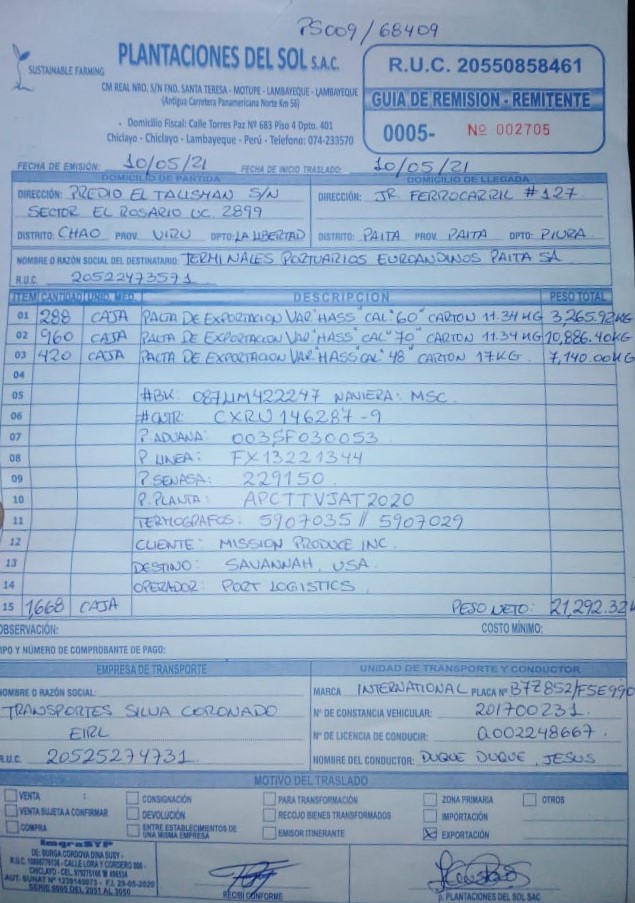 PS009/68409
SUSTAINABLE FARMING
PLANTACIONES DEL SOL S.A.C.
CM REAL NRO. S/N FND. SANTA TERESA - MOTUPE - LAMBAYEQUE - LAMBAYEQUE
(Antigua Carretera Panamericana Norte Km 56)
• Domicilio Fiscal: Calle Torres Paz Nº 683 Piso 4 Dpto. 401
Chiclayo - Chiclayo - Lambayeque - Perú - Telefono: 074-233570
R.U.C. 20550858461
GUIA DE REMISION - REMITENTE
0005- Nº 002705
FECHA DE EMISIÓN: 10/05/21 FECHA DE INICIO TRASLADO: 10/05/21
DOMICILIO DE PARTIDA DOMICILIO DE LLEGADA
DIRECCIÓN: PREDIO EL TALISMAN S/N DIRECCIÓN: JR. FERROCARRIL #127
SECTOR EL ROSARIO UC. 2899
DISTRITO: CHAO PROV. VIRU DPTO: LA LIBERTAD DISTRITO: PAITA PROV. PAITA DPTO: PIURA
NOMBRE O RAZÓN SOCIAL DEL DESTINATARIO: TERMINALES PORTUARIOS EUROANDINOS PAITA SA
R.U.C. 20522473571
ITEM CANTIDAD UNID. MED. DESCRIPCION PESO TOTAL
01 288 CAJA PALTA DE EXPORTACION VAR "HASS" CAL "60" CARTON 11.34 KG 3,265.92 KG
02 960 CAJA PALTA DE EXPORTACION VAR "HASS" CAL "70" CARTON 11.34 KG 10,886.40 KG
03 420 CAJA PALTA DE EXPORTACION VAR "HASS" CAL "48" CARTON 17 KG. 7,140.00 KG
04
05 #BK: 087UM422247 NAVIERA: MSC.
06 #CNTR: CXRU 146287-9
07 P. ADUANA: 0035F030053
08 P. LINEA: FX13221344
09 P. SENASA: 229150
10 P. PLANTA: APCTTVJAT2020
11 TERMOGRAFOS: 5907035 // 5907029
12 CLIENTE: MISSION PRODUCE INC.
13 DESTINO: SAVANNAH, USA.
14 OPERADOR: PORT LOGISTICS
15 1,668 CAJA PESO NETO: 21,292.32 K
OBSERVACIÓN: COSTO MÍNIMO:
IPO Y NÚMERO DE COMPROBANTE DE PAGO:
EMPRESA DE TRANSPORTE UNIDAD DE TRANSPORTE Y CONDUCTOR
NOMBRE O RAZÓN SOCIAL: MARCA INTERNATIONAL PLACA Nº B7Z852/F5E990
TRANSPORTES SILVA CORONADO Nº DE CONSTANCIA VEHICULAR: 201700231
EIRL Nº DE LICENCIA DE CONDUCIR: Q002248667
R.U.C. 20525274731 NOMBRE DEL CONDUCTOR: DUQUE DUQUE, JESUS
MOTIVO DEL TRASLADO
VENTA : CONSIGNACIÓN PARA TRANSFORMACIÓN ZONA PRIMARIA OTROS
VENTA SUJETA A CONFIRMAR DEVOLUCIÓN RECOJO BIENES TRANSFORMADOS IMPORTACIÓN
COMPRA ENTRE ESTABLECIMIENTOS DE UNA MISMA EMPRESA EMISOR ITINERANTE X EXPORTACIÓN
ImgraSYP
DE: BURGA CORDOVA DINA SUSY -
CALLE LORA Y CORDERO
CHICLAYO - CEL.
AUT. SUNAT Nº F.I. 29-05-2020
SERIE 0005 DEL 2051 AL 3050
RECIBI CONFORME p. PLANTACIONES DEL SOL SAC